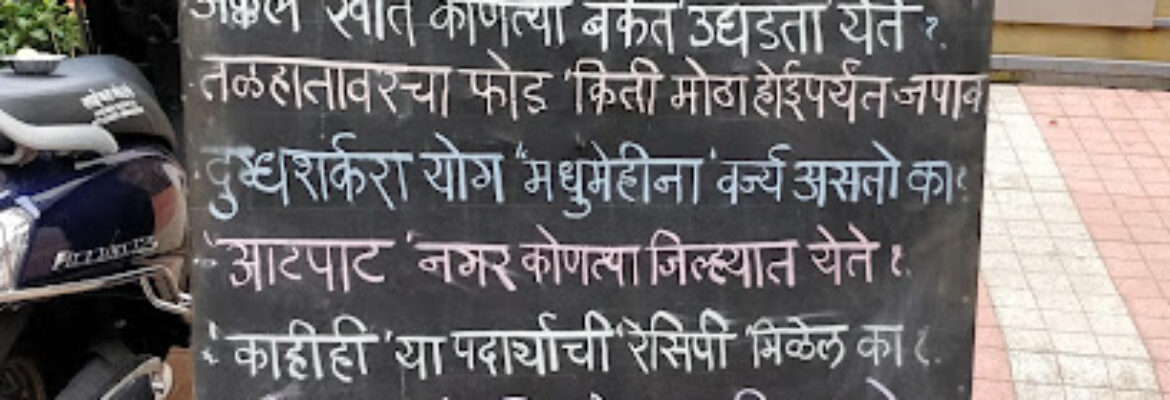 अक्कल खाते कोणत्या बँकेत उघडता येते ?
तळहातावरचा फोड 'किती मोठा होईपर्यंत जपाव
दुग्धशर्करा योग "मधुमेहीना' वर्ज्य असतो का?
'आटपाट' नगर कोणत्या जिल्ह्यात येते ?
'काहीही' या पदार्थाची 'रेसिपी' मिळेल का ?